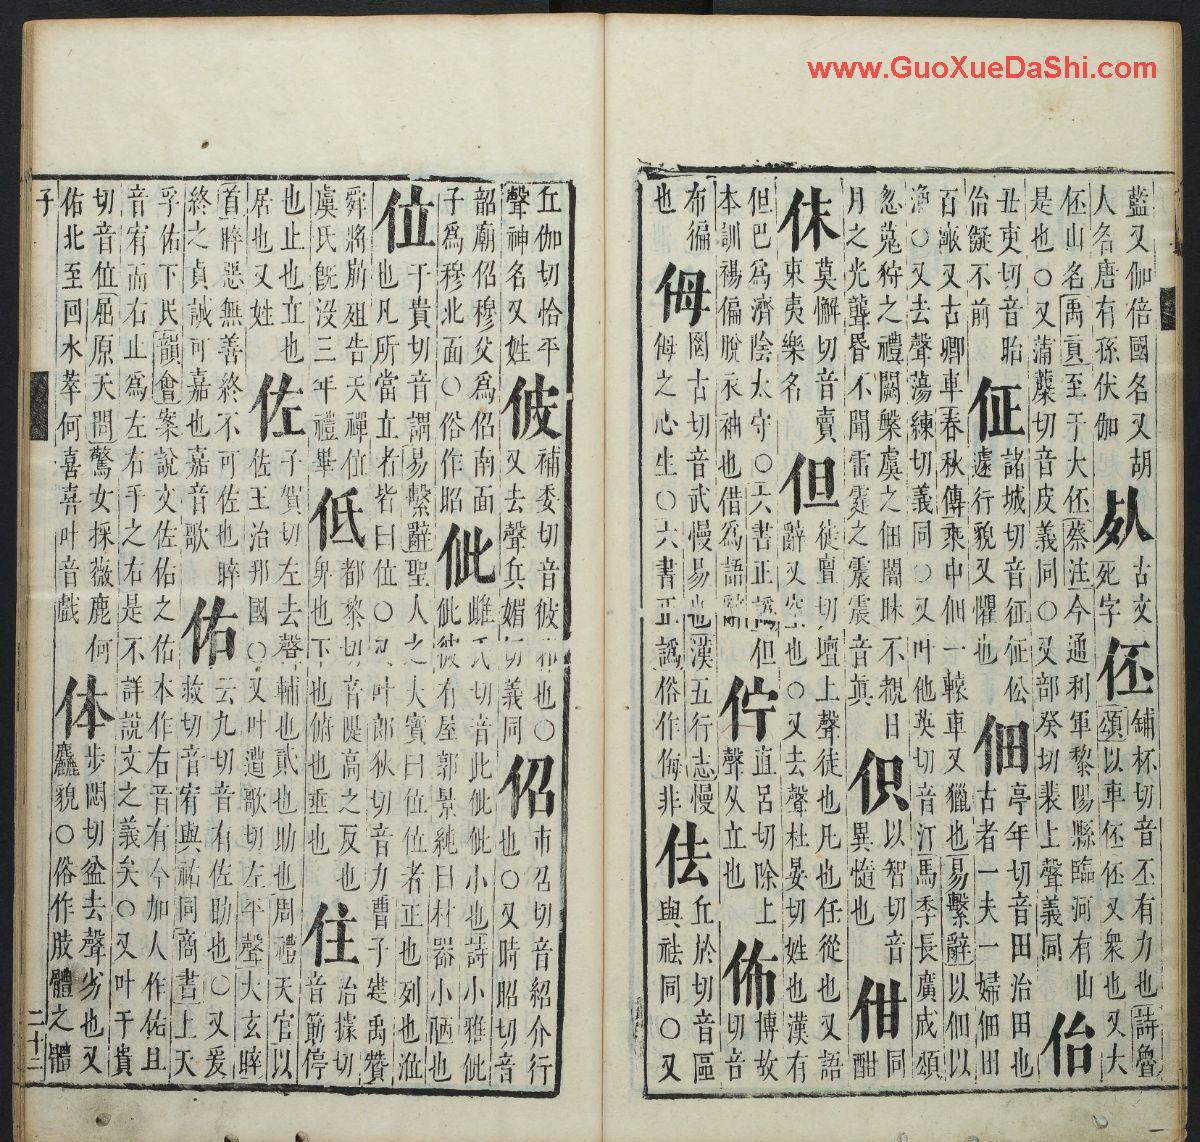 www.GuoXueDaShi.com
藍又伽倍國名又胡㕤古文伾鋪杯切音丕有力也詩魯
人名唐有孫伏伽死字頌以車伾伾又衆也又大
伾山名禹貢至于大伾蔡注今通利軍黎陽縣臨河有山
是也○又蒲蘪切音皮義同○又部癸切裴上聲義同佁
丑吏切音眙佂諸城切音征佂伀佃亭年切音田治田也
佁儗不前遽行貌又懼也古者一夫一婦佃田
百畝又古卿車春秋傳乘中佃一轅車又獵也易繫辭以佃以
漁○又去聲蕩練切義同○又叶他英切音汀馬季長廣成頌
忽蒐狩之禮闕槃虞之佃闇昧不覩日伿以智切音佄同
月之光聾昬不聞雷霆之震震音眞異惰也酣
佅莫懈切音賣但徒亶切壇上聲徒也凡也任從也又語
東夷樂名辭又空也○又去聲杜晏切姓也漢有
但巴爲濟陰太守○六書正譌但佇直呂切除上佈博故
本訓裼偏脫衣袖也借爲語辭聲久立也切音
布徧㑄罔古切音武慢易也漢五行志慢佉丘於切音區
也㑄之心生○六書正譌俗作侮非與祛同○又
丘伽切恰平佊補委切音彼邪也○佋市召切音紹介行
聲神名又姓又去聲兵媚切義同也○又時昭切音
韶廟佋穆父爲佋南面佌雌氏切音此佌佌小也詩小雅佌
子爲穆北面○俗作昭佌彼有屋郭景純曰材器小陋也
位于貴切音謂易繫辭聖人之大寶曰位位者正也列也涖
也凡所當立者皆曰位○又叶郎狄切音力曹子建禹贊
舜將崩殂告天禪位低都黎切音隄高之反也住治據切
虞氏旣沒三年禮畢畀也下也俯也垂也音箸停
也止也立也佐子賀切左去聲輔也貳也助也周禮天官以
居也又姓佐王治邦國○又叶遭歌切左平聲大玄睟
首睟惡無善終不可佐也睟佑云九切音有佐助也○又爰
終之貞誠可嘉也嘉音歌救切音宥與祐同商書上天
孚佑下民韻會案說文佐佑之佑本作右音有今加人作佑且
音宥而右止爲左右手之右是不詳說文之義矣○又叶于貴
切音位屈原天問驚女採薇鹿何体步悶切盆去聲劣也又
佑北至回水萃何喜喜叶音戲麤貌○俗作肢體之體
子
二十二